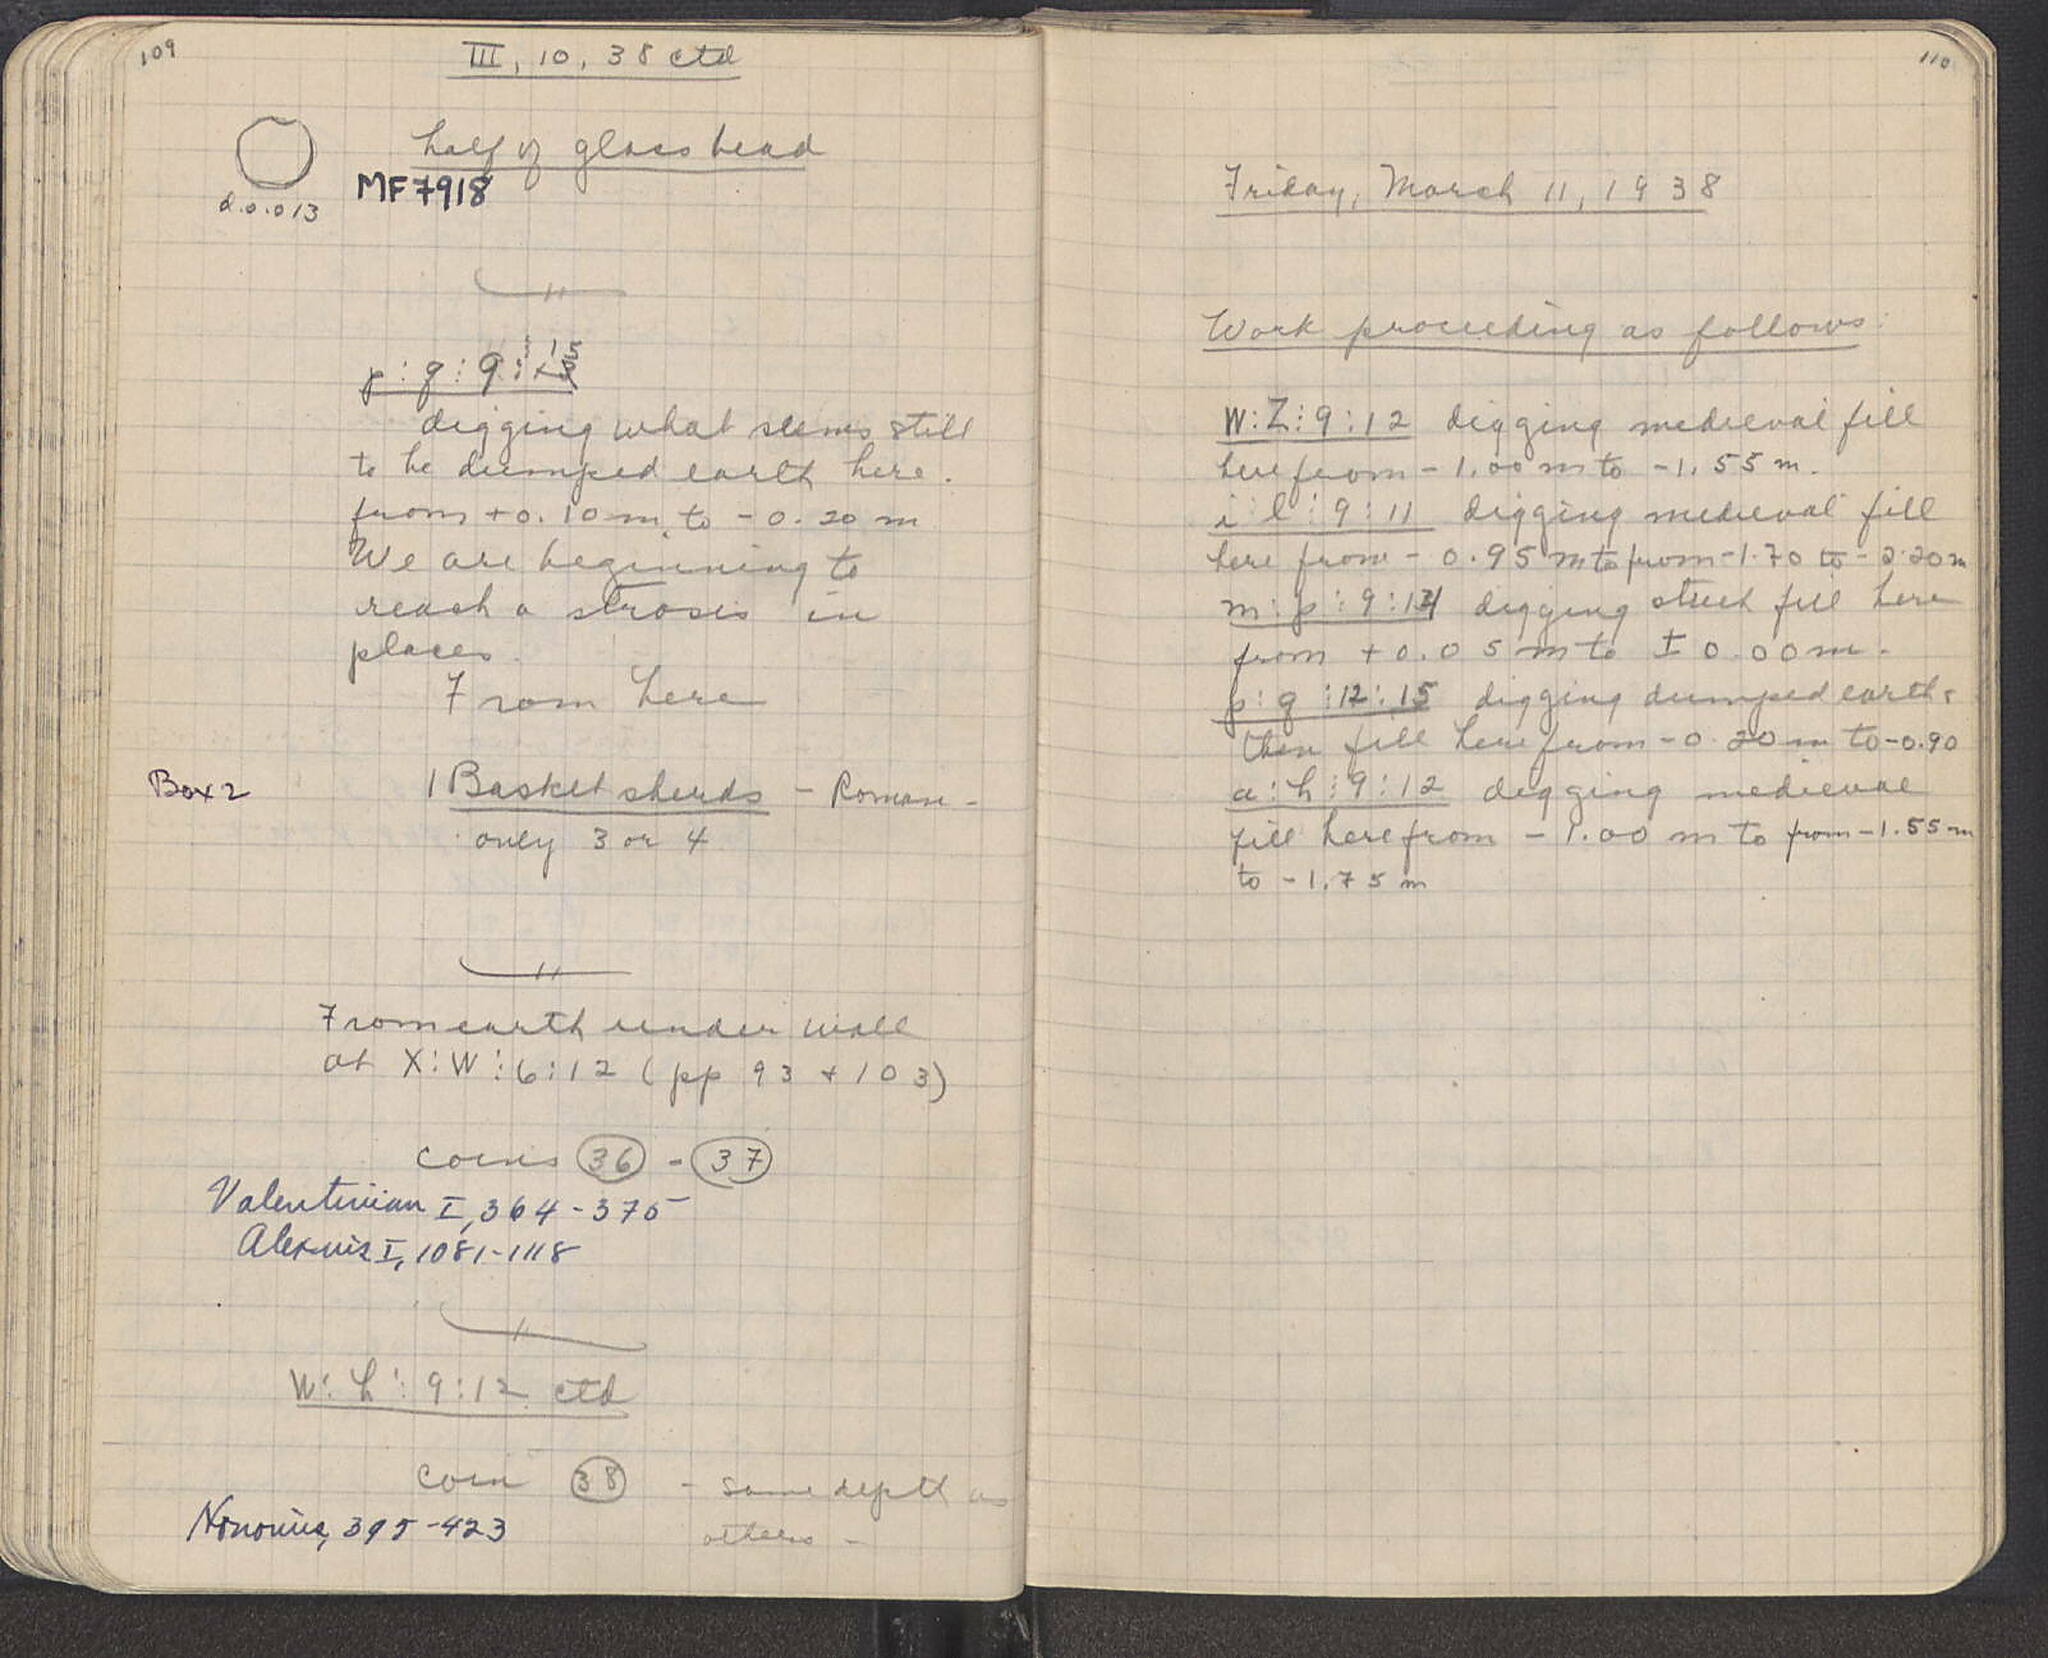 109
III, 10, 38 ctd
half of glass bead
MF7918
d. 0.013
p:q:9:15
digging what seems still
to be dumped earth here.
from +0.10 m to -0.20 m
We are beginning to
reach a strosis in
places.
From here
Box 2
1 Basket sherds - Roman -
only 3 or 4
From earth under wall
at X:W:6:12 (pp 93 + 103)
coins 36 - 37
Valentinian I, 364-375
Alexius I, 1081-1118
W:h:9:12 ctd
coin 38 - same depth as
others -
Honorius, 395-423
110
Friday, March 11, 1938
Work proceeding as follows:
W:Z:9:12 digging medieval fill
here from -1.00 m to -1.55 m.
i:l:9:11 digging medieval fill
here from -0.95 m to from -1.70 to -2.20 m
m:p:9: digging fill here
from +0.05 m to ±0.00 m.
p:q:12:15 digging dumped earth &
then fill here from -0.20 m to -0.90
a:h:9:12 digging medieval
fill here from -1.00 m to from -1.55 m
to -1.75 m